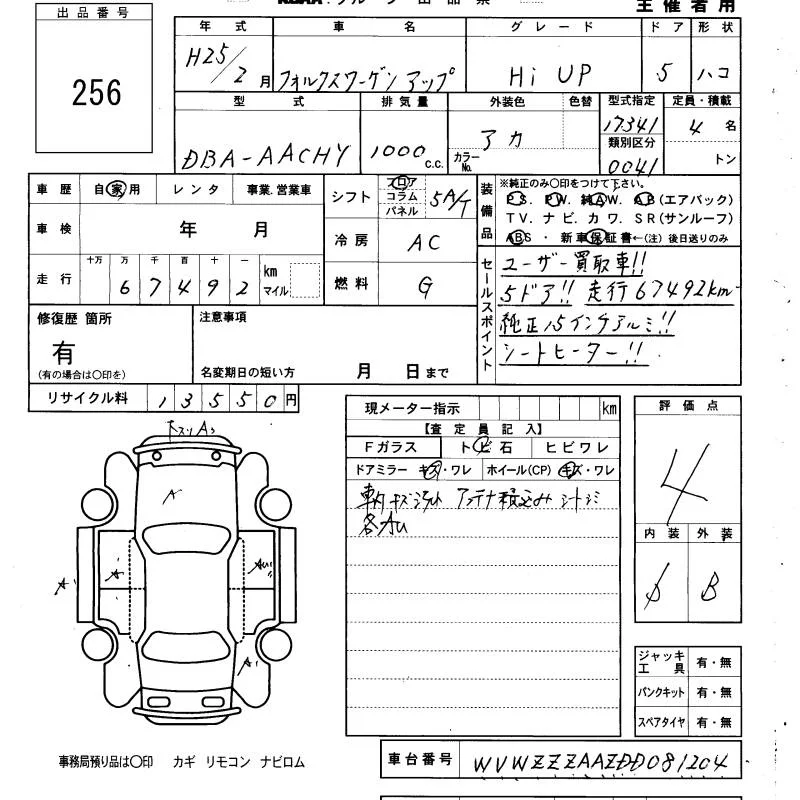 出品番号
256
主催者用
年式 車名 グレード ドア 形状
H25/2月 フォルクスワーゲン アップ Hi UP 5 ハコ
型式 排気量 外装色 色替 型式指定 定員・積載
DBA-AACHY 1000 c.c. アカ カラーNo. 17341 4名
類別区分
0041 トン
車歴 自家用 レンタ 事業.営業車
車検 年 月
走行 十万 万 千 百 十 一
67492 km マイル
シフト フロア コラム パネル 5A/T
冷房 AC
燃料 G
装備品
※純正のみ○印をつけて下さい。
P.S. P.W. 純A.W. A.B(エアバック)
TV. ナビ. カワ. SR(サンルーフ)
ABS・新車保証書←(注)後日送りのみ
セールスポイント
ユーザー買取車!!
5ドア!! 走行67492km
純正15インチアルミ!!
シートヒーター!!
修復歴 箇所
有
(有の場合は○印を)
注意事項
名変期日の短い方 月 日まで
リサイクル料 13550円
現メーター指示 km
【査定員記入】
Fガラス トビ石 ヒビワレ
ドアミラー キズ・ワレ ホイール(CP) キズ・ワレ
各AU
評価点
4
内装 外装
B
A
A
A
A
ジャッキ工具 有・無
パンクキット 有・無
スペアタイヤ 有・無
事務局預り品は○印 カギ リモコン ナビロム
車台番号 WVWZZZAAZDD081204